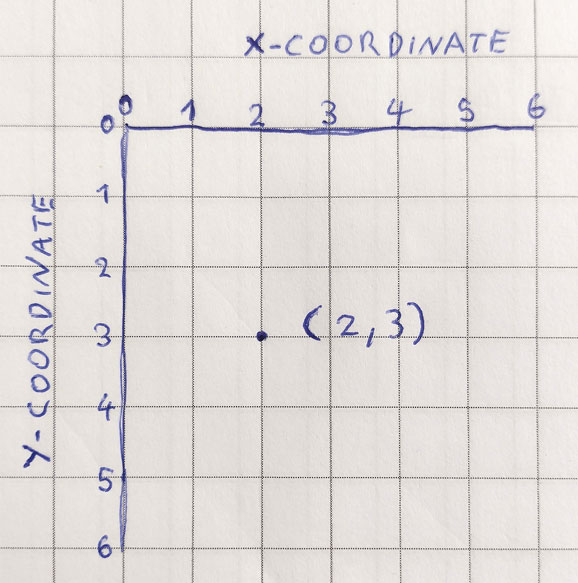 X-COORDINATE
0 1 2 3 4 5 6
0
1
2
3
4
5
6
Y-COORDINATE
(2,3)